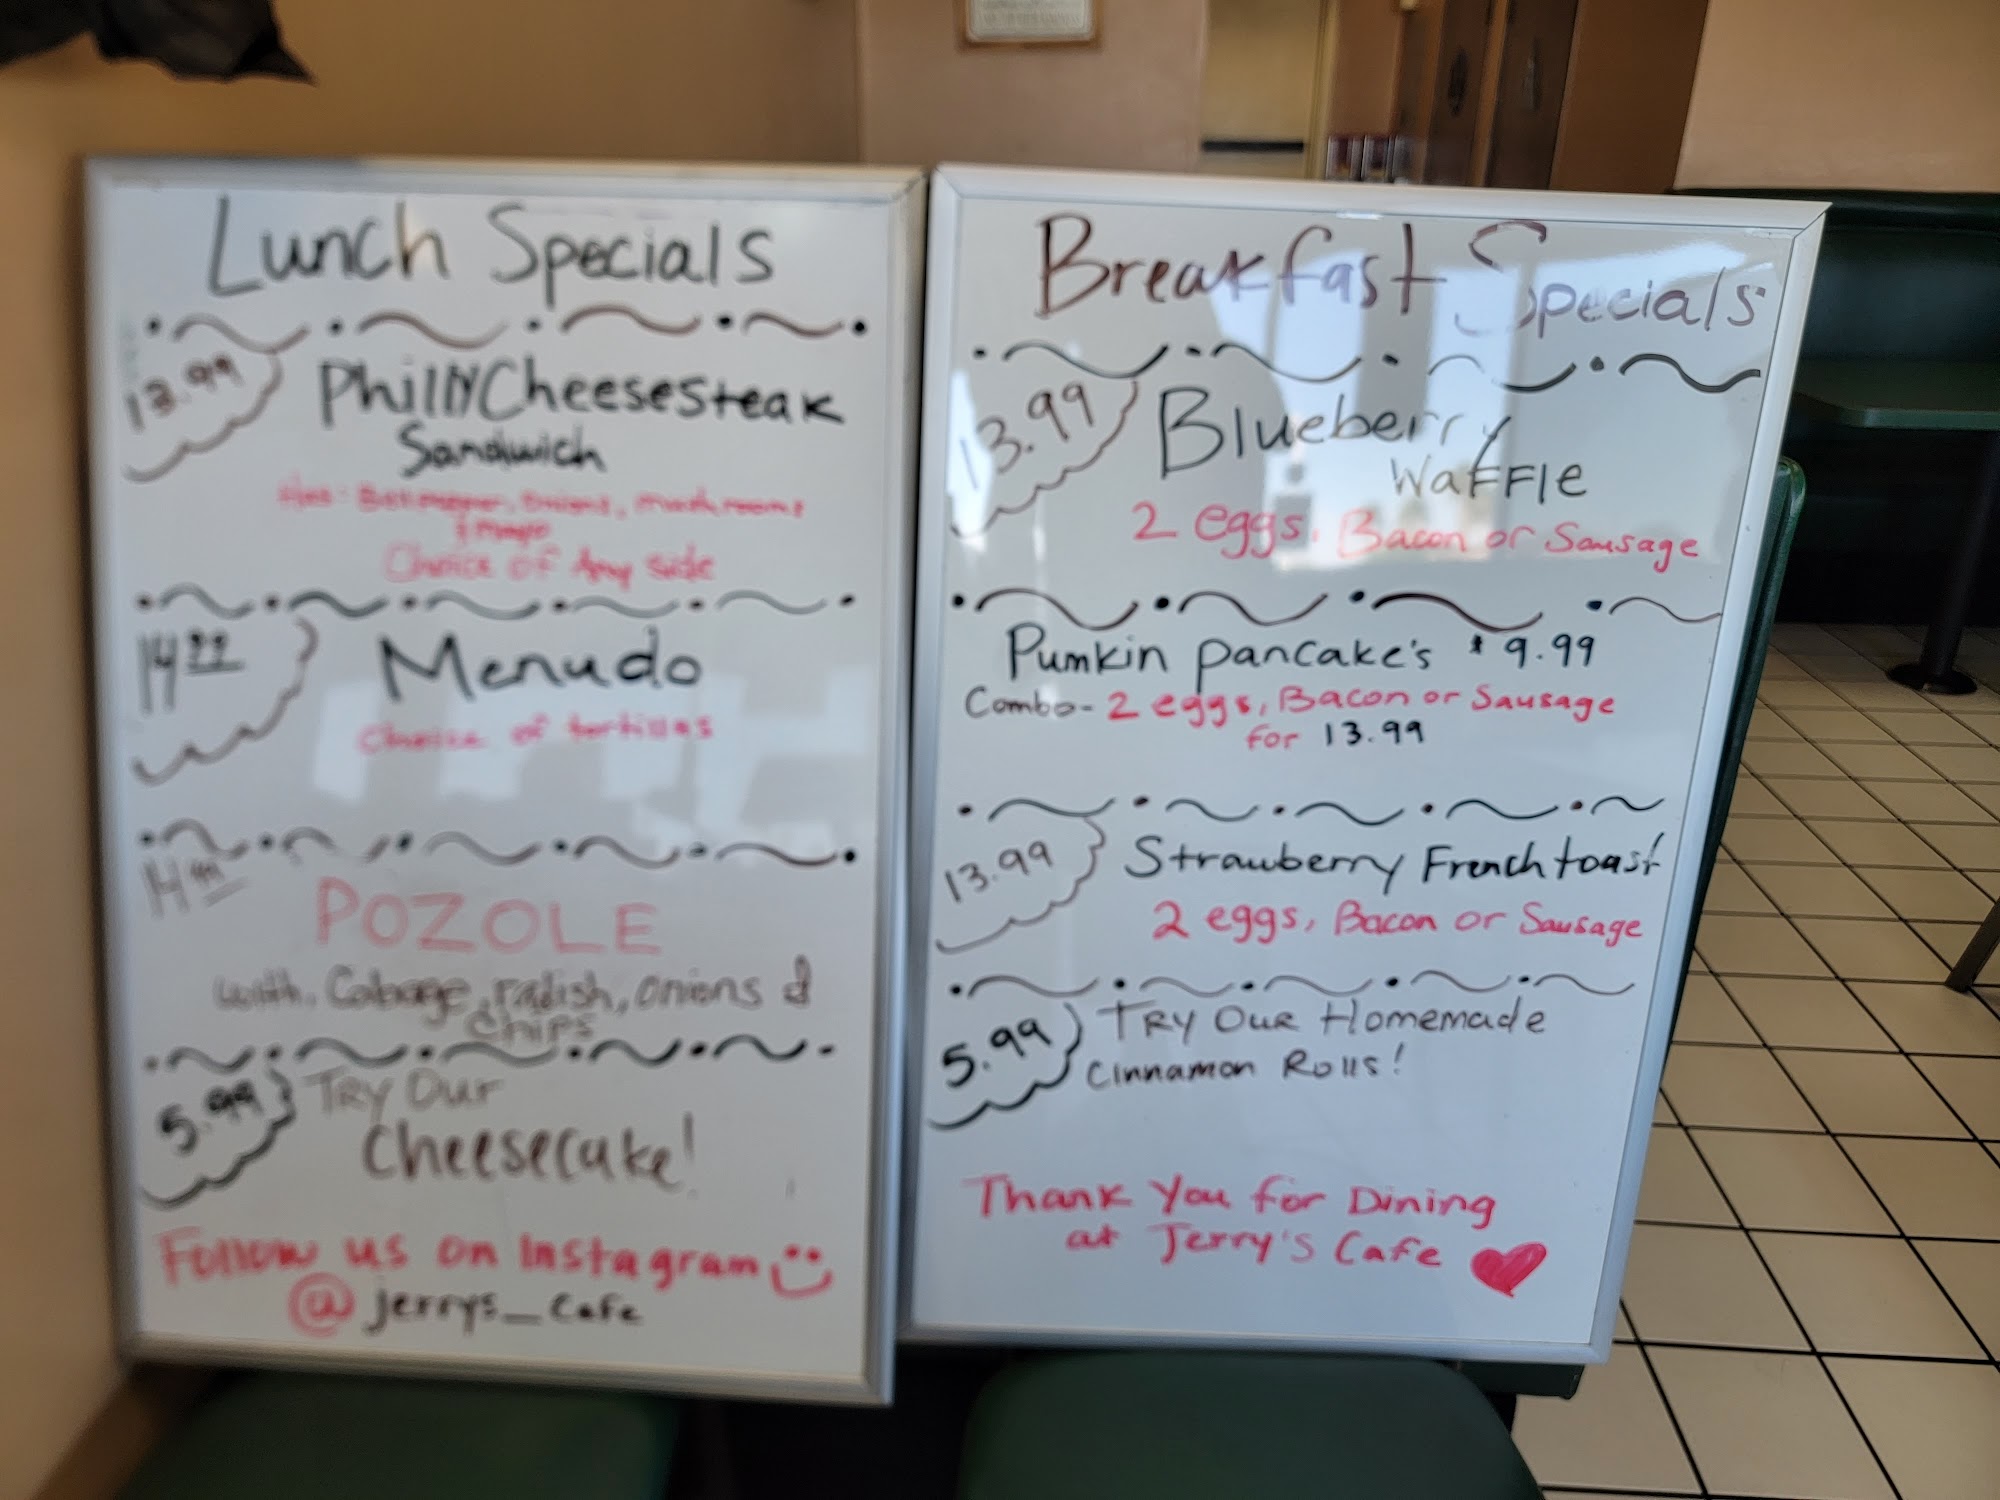 Lunch Specials
13.99
Philly Cheesesteak
Sandwich
Bell Pepper, Onions, mushrooms
& Mayo
Choice of Any side
14.99
Menudo
Choice of tortillas
14.99
POZOLE
with, Cabage, radish, onions &
chips
5.99
Try Our
Cheesecake!
Follow us on Instagram
@jerrys_cafe
Breakfast Specials
13.99
Blueberry
Waffle
2 eggs, Bacon or Sausage
Pumkin pancake's $9.99
Combo- 2 eggs, Bacon or Sausage
for 13.99
13.99
Strawberry French toast
2 eggs, Bacon or Sausage
5.99
Try Our Homemade
Cinnamon Rolls!
Thank You for Dining
at Jerry's Cafe